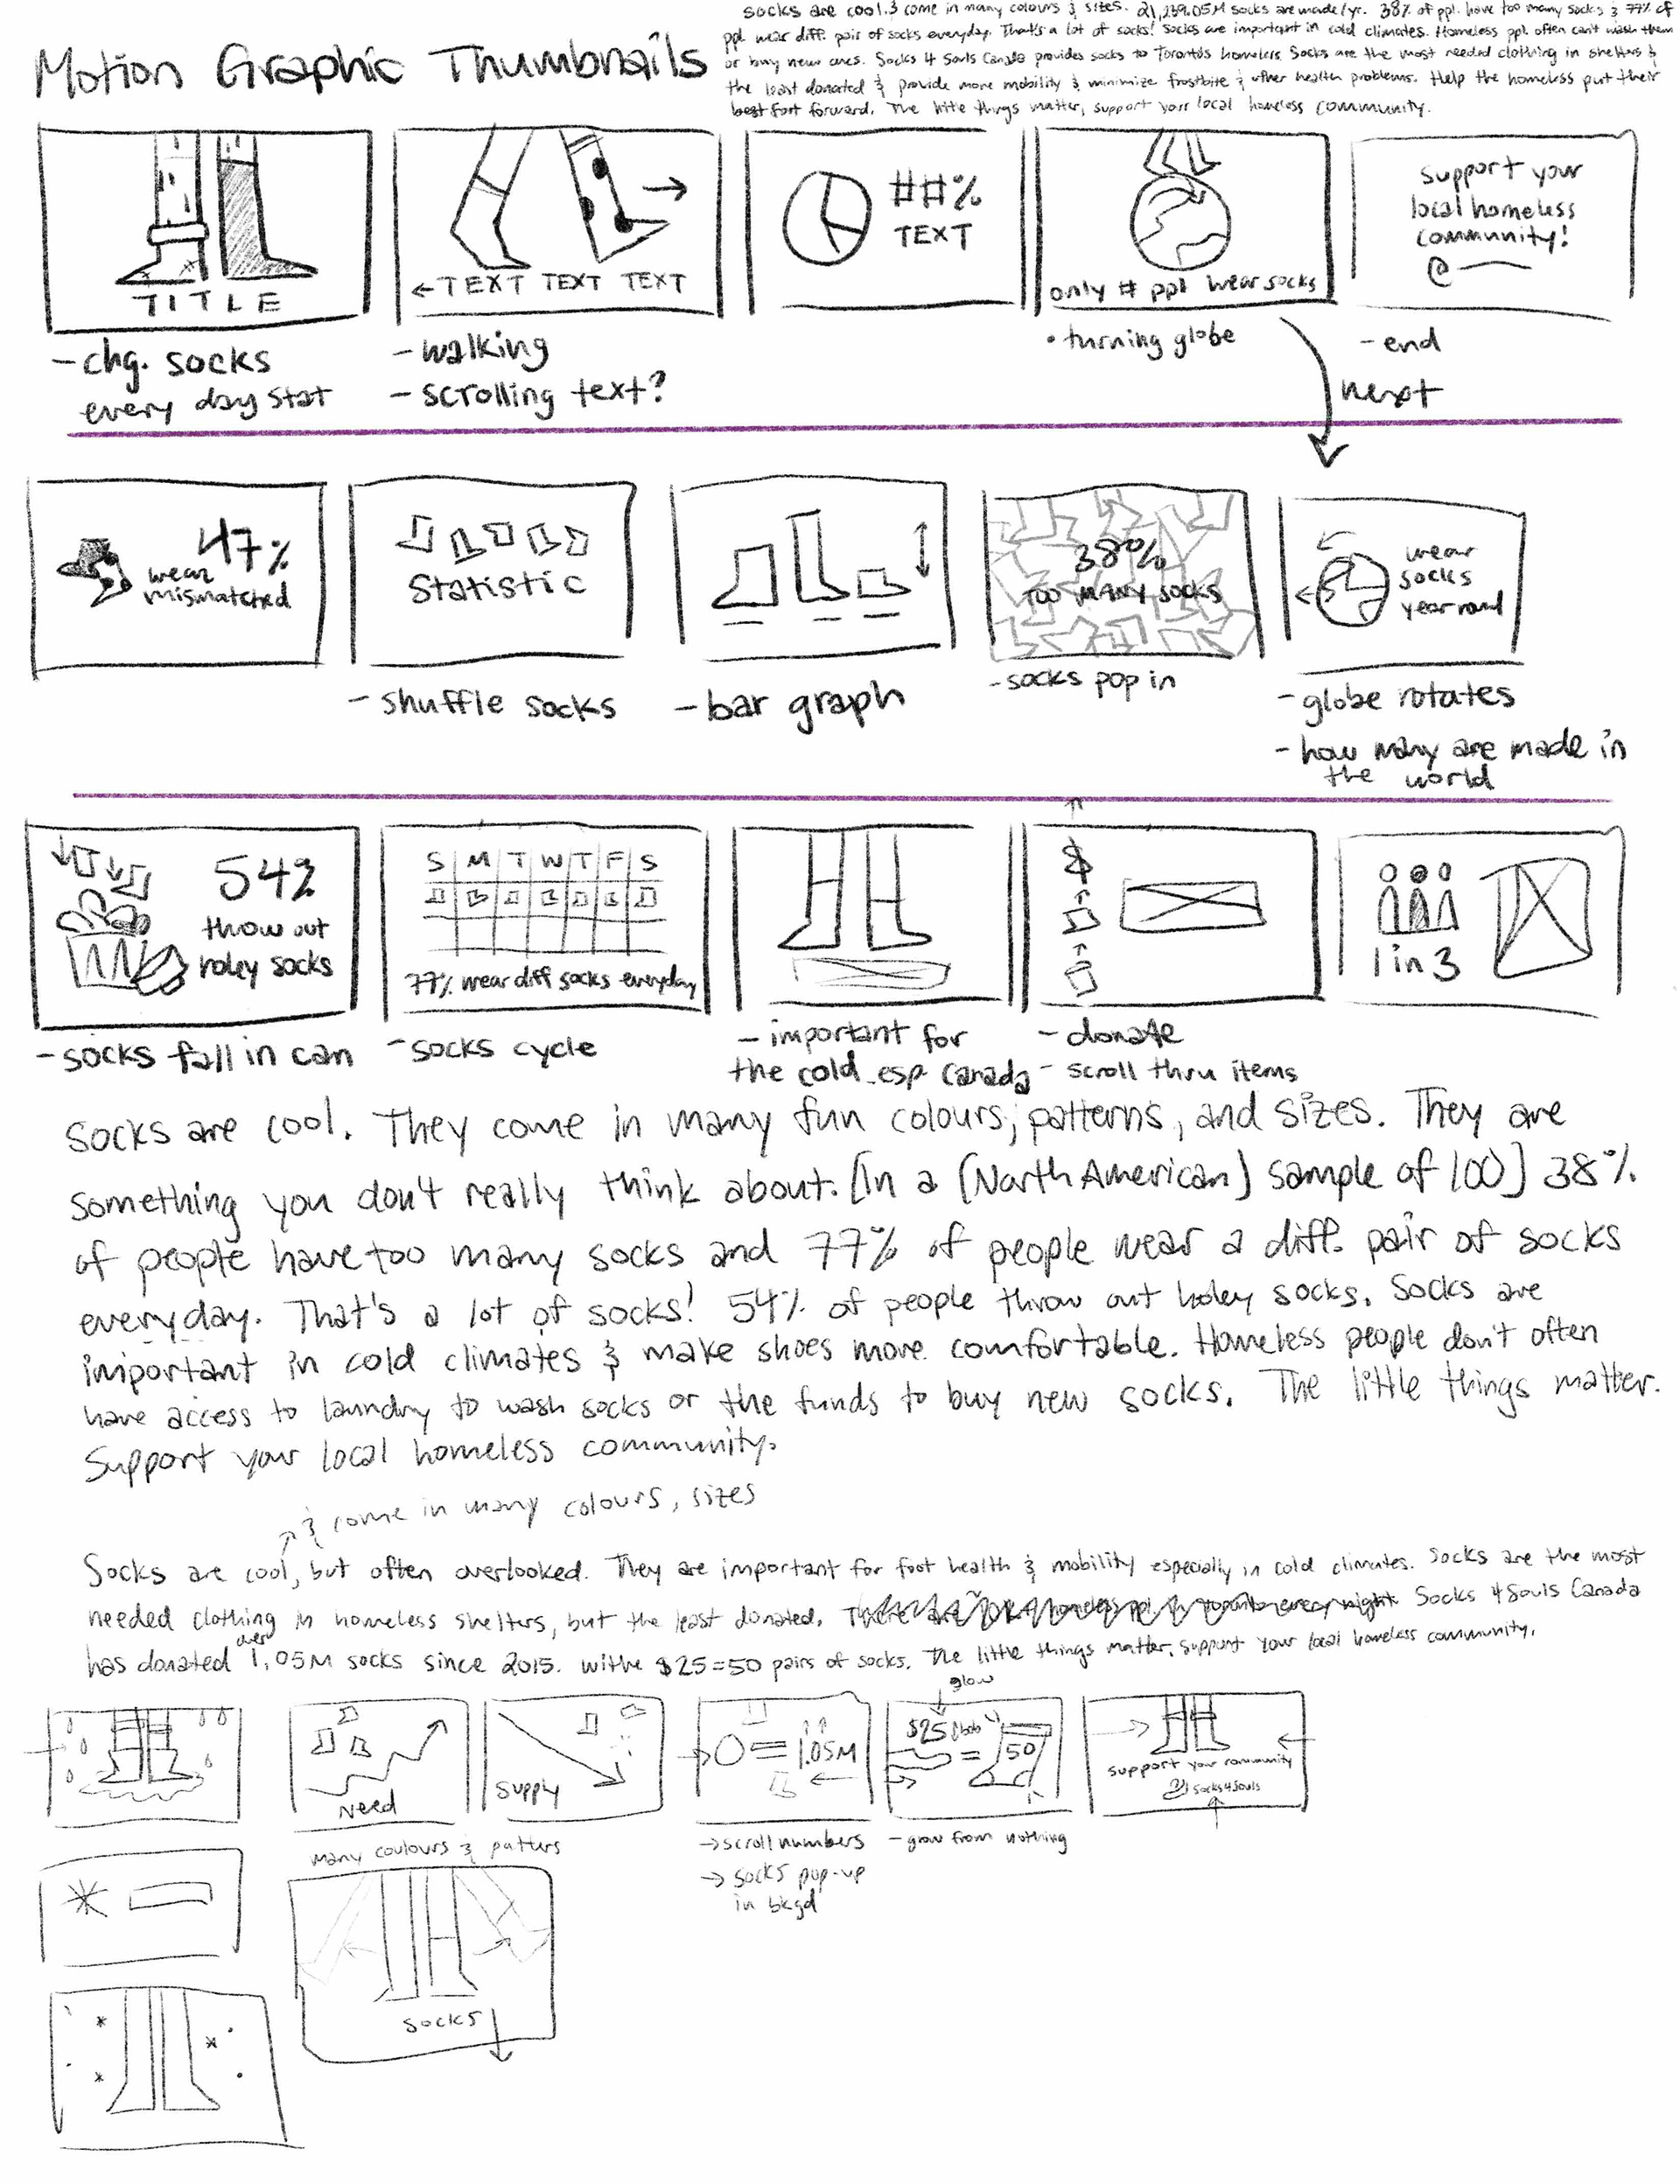 Motion Graphic Thumbnails
socks are cool. & come in many colours & sizes. 21,239.05M socks are made/yr. 38% of ppl. have too many socks & 77% of
ppl wear diff. pair of socks everyday. That's a lot of socks! Socks are important in cold climates. Homeless ppl often can't wash them
or buy new ones. Socks 4 Souls Canada provides socks to Toronto's homeless. Socks are the most needed clothing in shelters &
the least donated & provide more mobility & minimize frostbite & other health problems. Help the homeless put their
best foot forward. The little things matter, support your local homeless community.
TITLE
←TEXT TEXT TEXT
##%
TEXT
only # ppl wear socks
support your
local homeless
community!
@
- chg. socks
every day stat
- walking
- scrolling text?
• turning globe
- end
next
47%
wear
mismatched
Statistic
38%
TOO MANY SOCKS
wear
socks
year round
- shuffle socks
- bar graph
- socks pop in
- globe rotates
- how many are made in
the world
54%
throw out
holey socks
S M T W T F S
77% wear diff socks everyday
$
1 in 3
- socks fall in can
- socks cycle
- important for
the cold esp Canada
- donate
- scroll thru items
socks are cool. They come in many fun colours, patterns, and sizes. They are
something you don't really think about. [In a (North American) sample of 100] 38%
of people have too many socks and 77% of people wear a diff. pair of socks
everyday. That's a lot of socks! 54% of people throw out holey socks. Socks are
important in cold climates & make shoes more comfortable. Homeless people don't often
have access to laundry to wash socks or the funds to buy new socks. The little things matter.
Support your local homeless community.
& come in many colours, sizes
Socks are cool, but often overlooked. They are important for foot health & mobility especially in cold climates. Socks are the most
needed clothing in homeless shelters, but the least donated. Socks 4 Souls Canada
has donated over 1.05M socks since 2015. withe $25 = 50 pairs of socks. The little things matter, support your local homeless community.
Need
Supply
1.05M
glow
$25
= 50
support your community
@socks4souls
many coulours & patters
→ scroll numbers
→ socks pop-up
in bkgd
- grow from nothing
socks